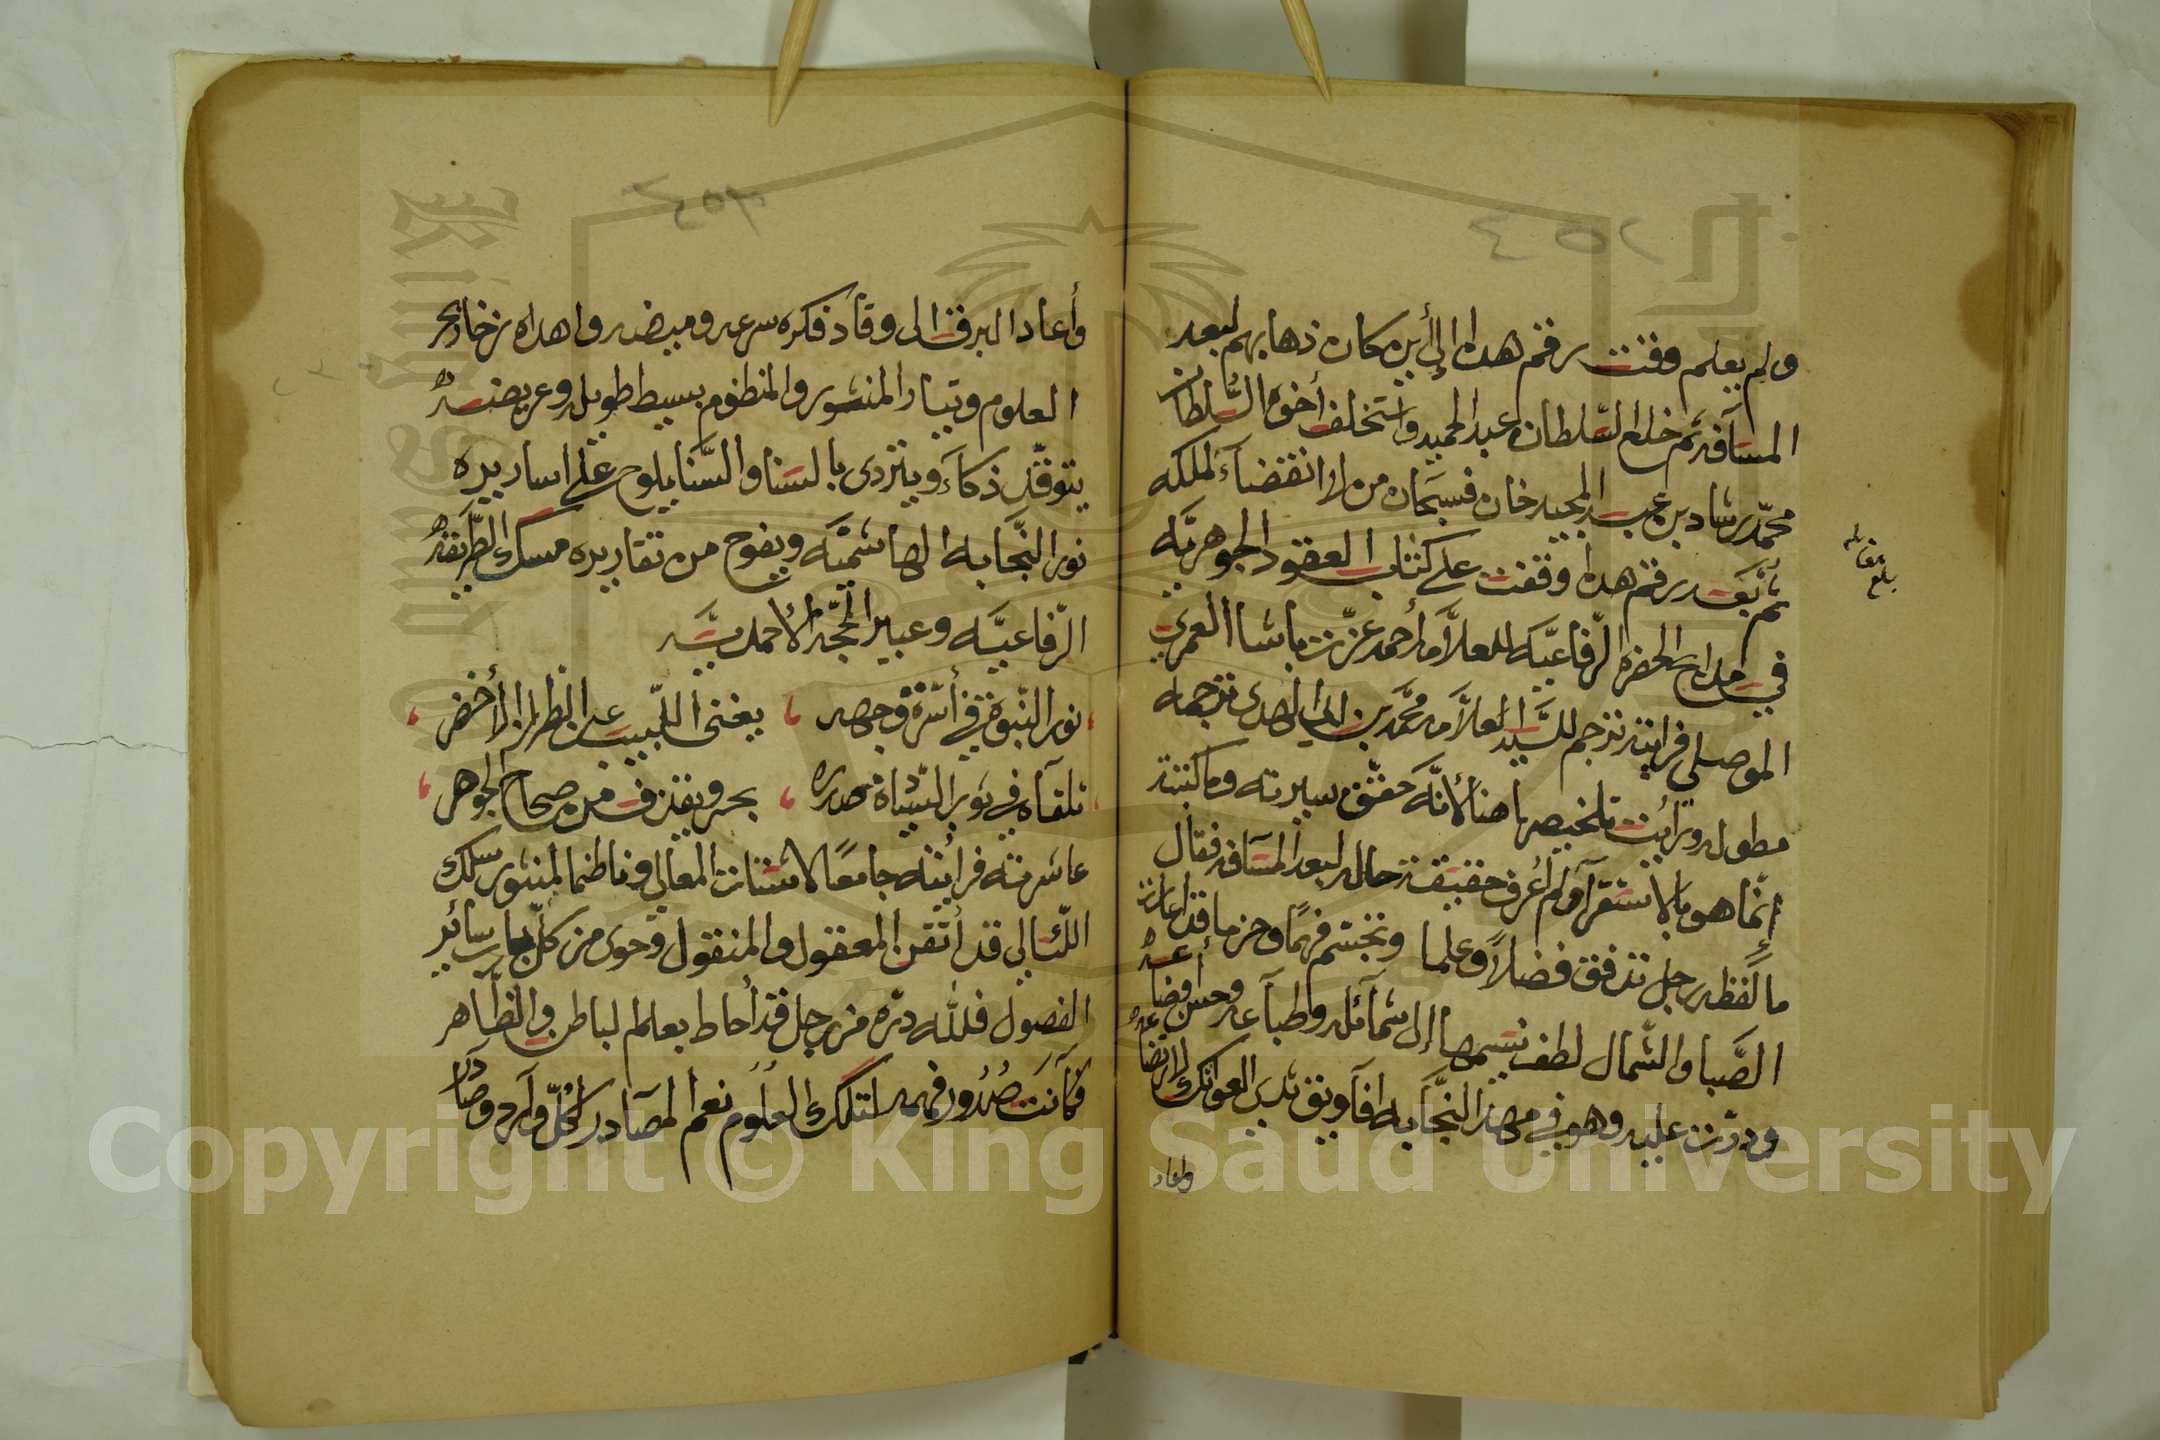 ولم يعلم وقت رقم هذا إلى أين مكان ذهابهم لبعد
المسافة ثم خلع السلطان عبد الحميد واستخلف أخوه السُّلطان
محمّد رشاد بن عبد المجيد خان فسبحان من لا انقضآء لملكه
ثم بَعْد رقم هذا وقفت على كتاب العقود الجوهريّة
في مدائح الحضرة الرّفاعيّة للعلاّمة أحمد عزّت باشا العمري
الموصلي فرايته ترجم للسَّيد العلاَّمة محمَّد بن ابي الهدى ترجمة
مطولة ورايت تلخيصها هنا لأنَّه حقّق سيرته وما كتبته
إنّما هو بالاستقرآء ولم اعرف حقيقة حاله لبعد المسَافة فقال
ما لفظه رجل تدفق فضلاً وعلما وتجسّم فهمًا وحزما قد اعارته
الصَّبا والشّمال لطف نسيمها إلى شمآئله وطباعه وحسن أوضاعه
ودرّت عليه وهو في مهد النَّجابة افآويق ثدي العواتك لارتضاعه
وأعاد
بلغ
مقابلة
٢٥٤
وأعاد البرق الى وقاد فكره سرعه وميضه واهداه زخار بحر
العلوم وتيار المنثور والمنظوم بسيط طويله وعريضه
يتوقّد ذكآءً ويتردى بالسنا والسَّنا يلوح على اساريره
نور النّجابه الهاشميَّه ويفوح من تقاريره مسك الطّريقة
الرّفاعيَّه وعبير الحجّة الأحمديَّه
نور النّبوّة في أسَرّة وجهه ، يغنى اللّبيب عن الطراز الأخضر ،
تلقآه في نور السّيادة صدره ، بحر ويقذف من صحاح الجوهر ،
عاشرته فرأيته جامعًا لاشتات المعالي وناظما لمنثور سلك
اللّئالي قد أتقن المعقول والمنقول وحوى من كلّ باب سائر
الفصول فللّه درّه من رجل قد أحاط بعلم الباطن والظّاهر
فكآنت صُدُور فهمه لتلك العُلُوم نعم المصَادر لكُلّ وآرد وصَادر